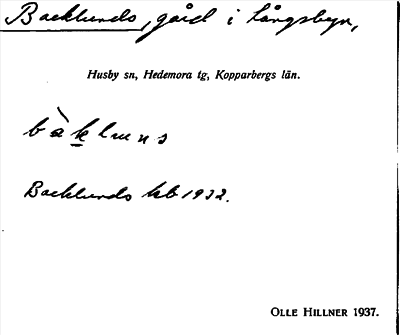 Backlunds, gård i Långsbyn,
Husby sn, Hedemora tg, Kopparbergs län.
Backlunds kb 1932.
OLLE HILLNER 1937.